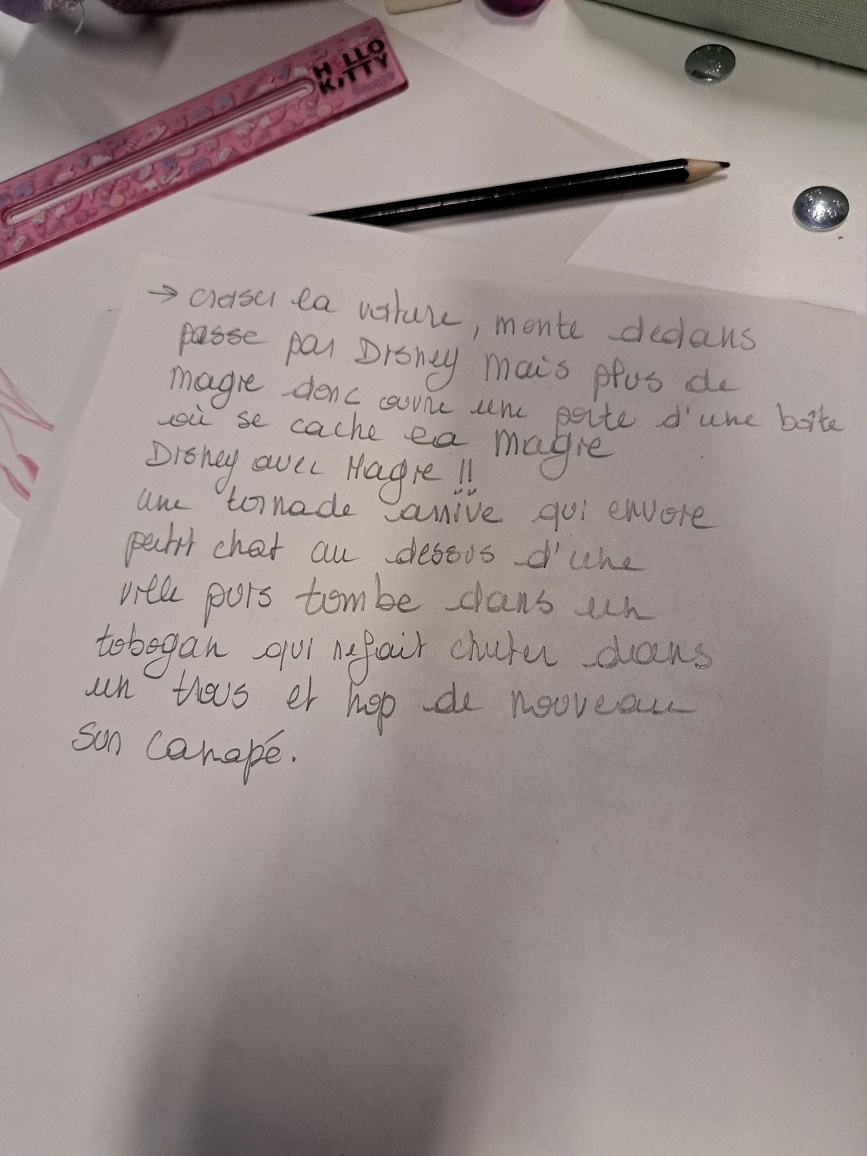 H LLO
KITTY
→ croiser la voiture, monte dedans
passe par Disney mais plus de
magie donc ouvre une porte d'une boîte
où se cache la magie
Disney avec Magie !!
une tornade arrive qui envoie
petit chat au dessus d'une
ville puis tombe dans un
tobogan qui refait chuter dans
un trous et hop de nouveau
sur canapé.